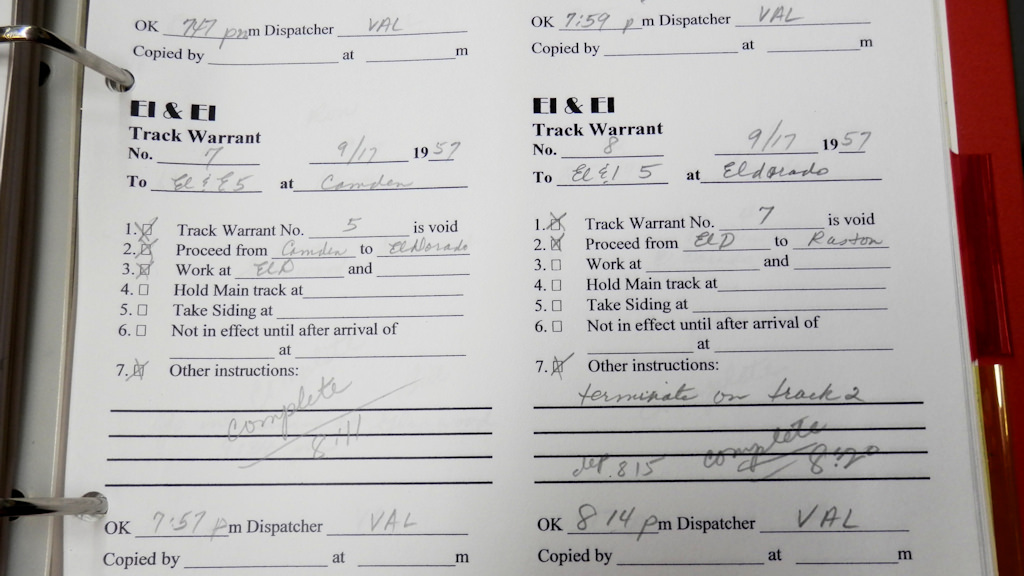 OK 7:47 pm m Dispatcher VAL
Copied by ____ at ____ m
EI & EI
Track Warrant
No. 7 9/17 1957
To El & E 5 at Camden
1. ☒ Track Warrant No. 5 is void
2. ☒ Proceed from Camden to ElDorado
3. ☒ Work at ElD and ____
4. ☐ Hold Main track at ____
5. ☐ Take Siding at ____
6. ☐ Not in effect until after arrival of
____ at ____
7. ☒ Other instructions:
complete
8:11
OK 7:57 pm Dispatcher VAL
Copied by ____ at ____ m
OK 7:59 p m Dispatcher VAL
Copied by ____ at ____ m
EI & EI
Track Warrant
No. 8 9/17 1957
To El & I 5 at Eldorado
1. ☒ Track Warrant No. 7 is void
2. ☒ Proceed from ElD to Ruston
3. ☐ Work at ____ and ____
4. ☐ Hold Main track at ____
5. ☐ Take Siding at ____
6. ☐ Not in effect until after arrival of
____ at ____
7. ☒ Other instructions:
terminate on track 2
dep. 815 complete 8:20
OK 8 14 pm Dispatcher VAL
Copied by ____ at ____ m